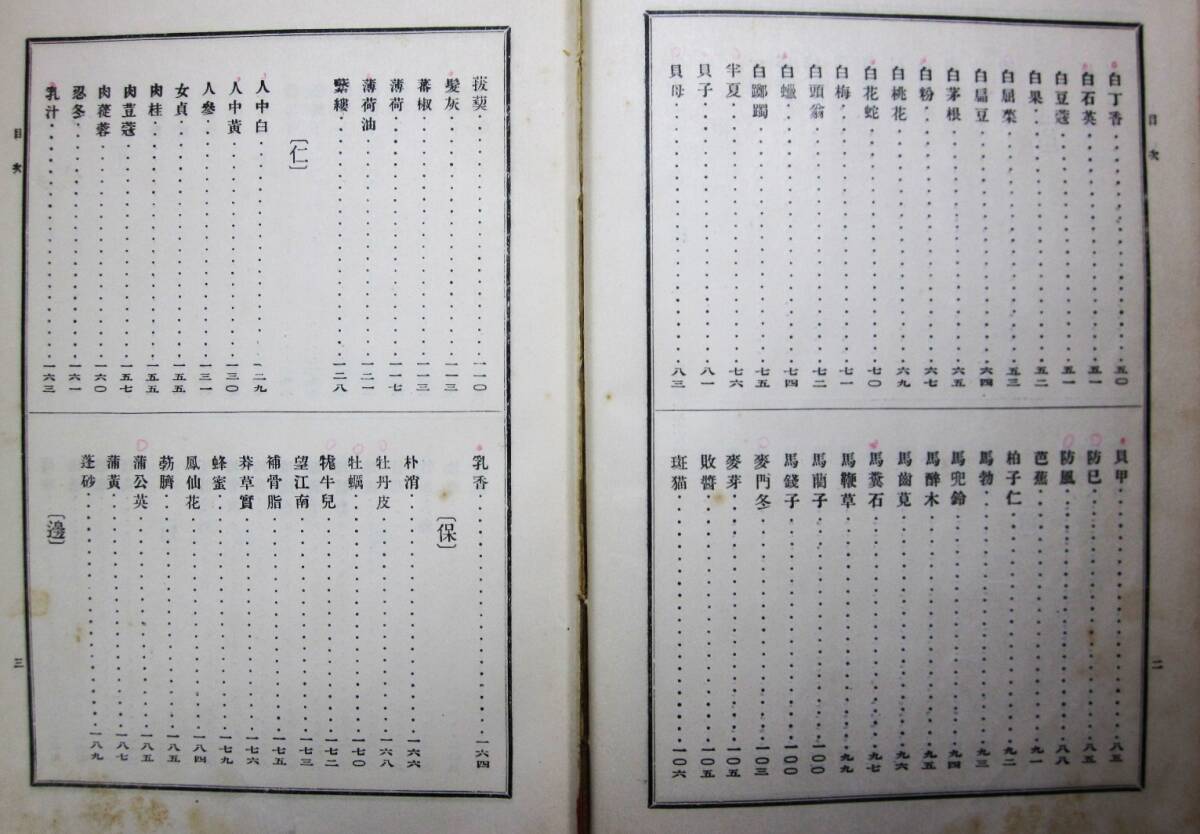 目次
白丁香‥‥五〇
白石英‥‥五一
白豆蔻‥‥五一
白果‥‥五二
白屈菜‥‥五三
白扁豆‥‥六四
白茅根‥‥六五
白粉‥‥六七
白桃花‥‥六九
白花蛇‥‥七〇
白梅‥‥七一
白頭翁‥‥七二
白蠟‥‥七四
白躑躅‥‥七五
半夏‥‥七六
貝子‥‥八一
貝母‥‥八三
貝甲‥‥八三
防已‥‥八五
防風‥‥八八
芭蕉‥‥九一
柏子仁‥‥九二
馬勃‥‥九三
馬兜鈴‥‥九四
馬醉木‥‥九五
馬齒莧‥‥九六
馬糞石‥‥九七
馬鞭草‥‥九九
馬藺子‥‥一〇〇
馬錢子‥‥一〇〇
麥門冬‥‥一〇三
麥芽‥‥一〇五
敗醬‥‥一〇五
斑猫‥‥一〇六
二
菝葜‥‥一一〇
髮灰‥‥一一三
蕃椒‥‥一一三
薄荷‥‥一一七
薄荷油‥‥一二一
蘩縷‥‥一二八
〔仁〕
人中白‥‥一二九
人中黃‥‥一三〇
人參‥‥一三一
女貞‥‥一五五
肉桂‥‥一五五
肉荳蔻‥‥一五七
肉蓯蓉‥‥一六〇
忍冬‥‥一六一
乳汁‥‥一六三
乳香‥‥一六四
〔保〕
朴消‥‥一六六
牡丹皮‥‥一六八
牡蠣‥‥一七〇
牻牛兒‥‥一七二
望江南‥‥一七三
補骨脂‥‥一七五
莽草實‥‥一七六
蜂蜜‥‥一七九
鳳仙花‥‥一八四
葧臍‥‥一八五
蒲公英‥‥一八五
蒲黃‥‥一八七
蓬砂‥‥一八九
〔邊〕
目次
三